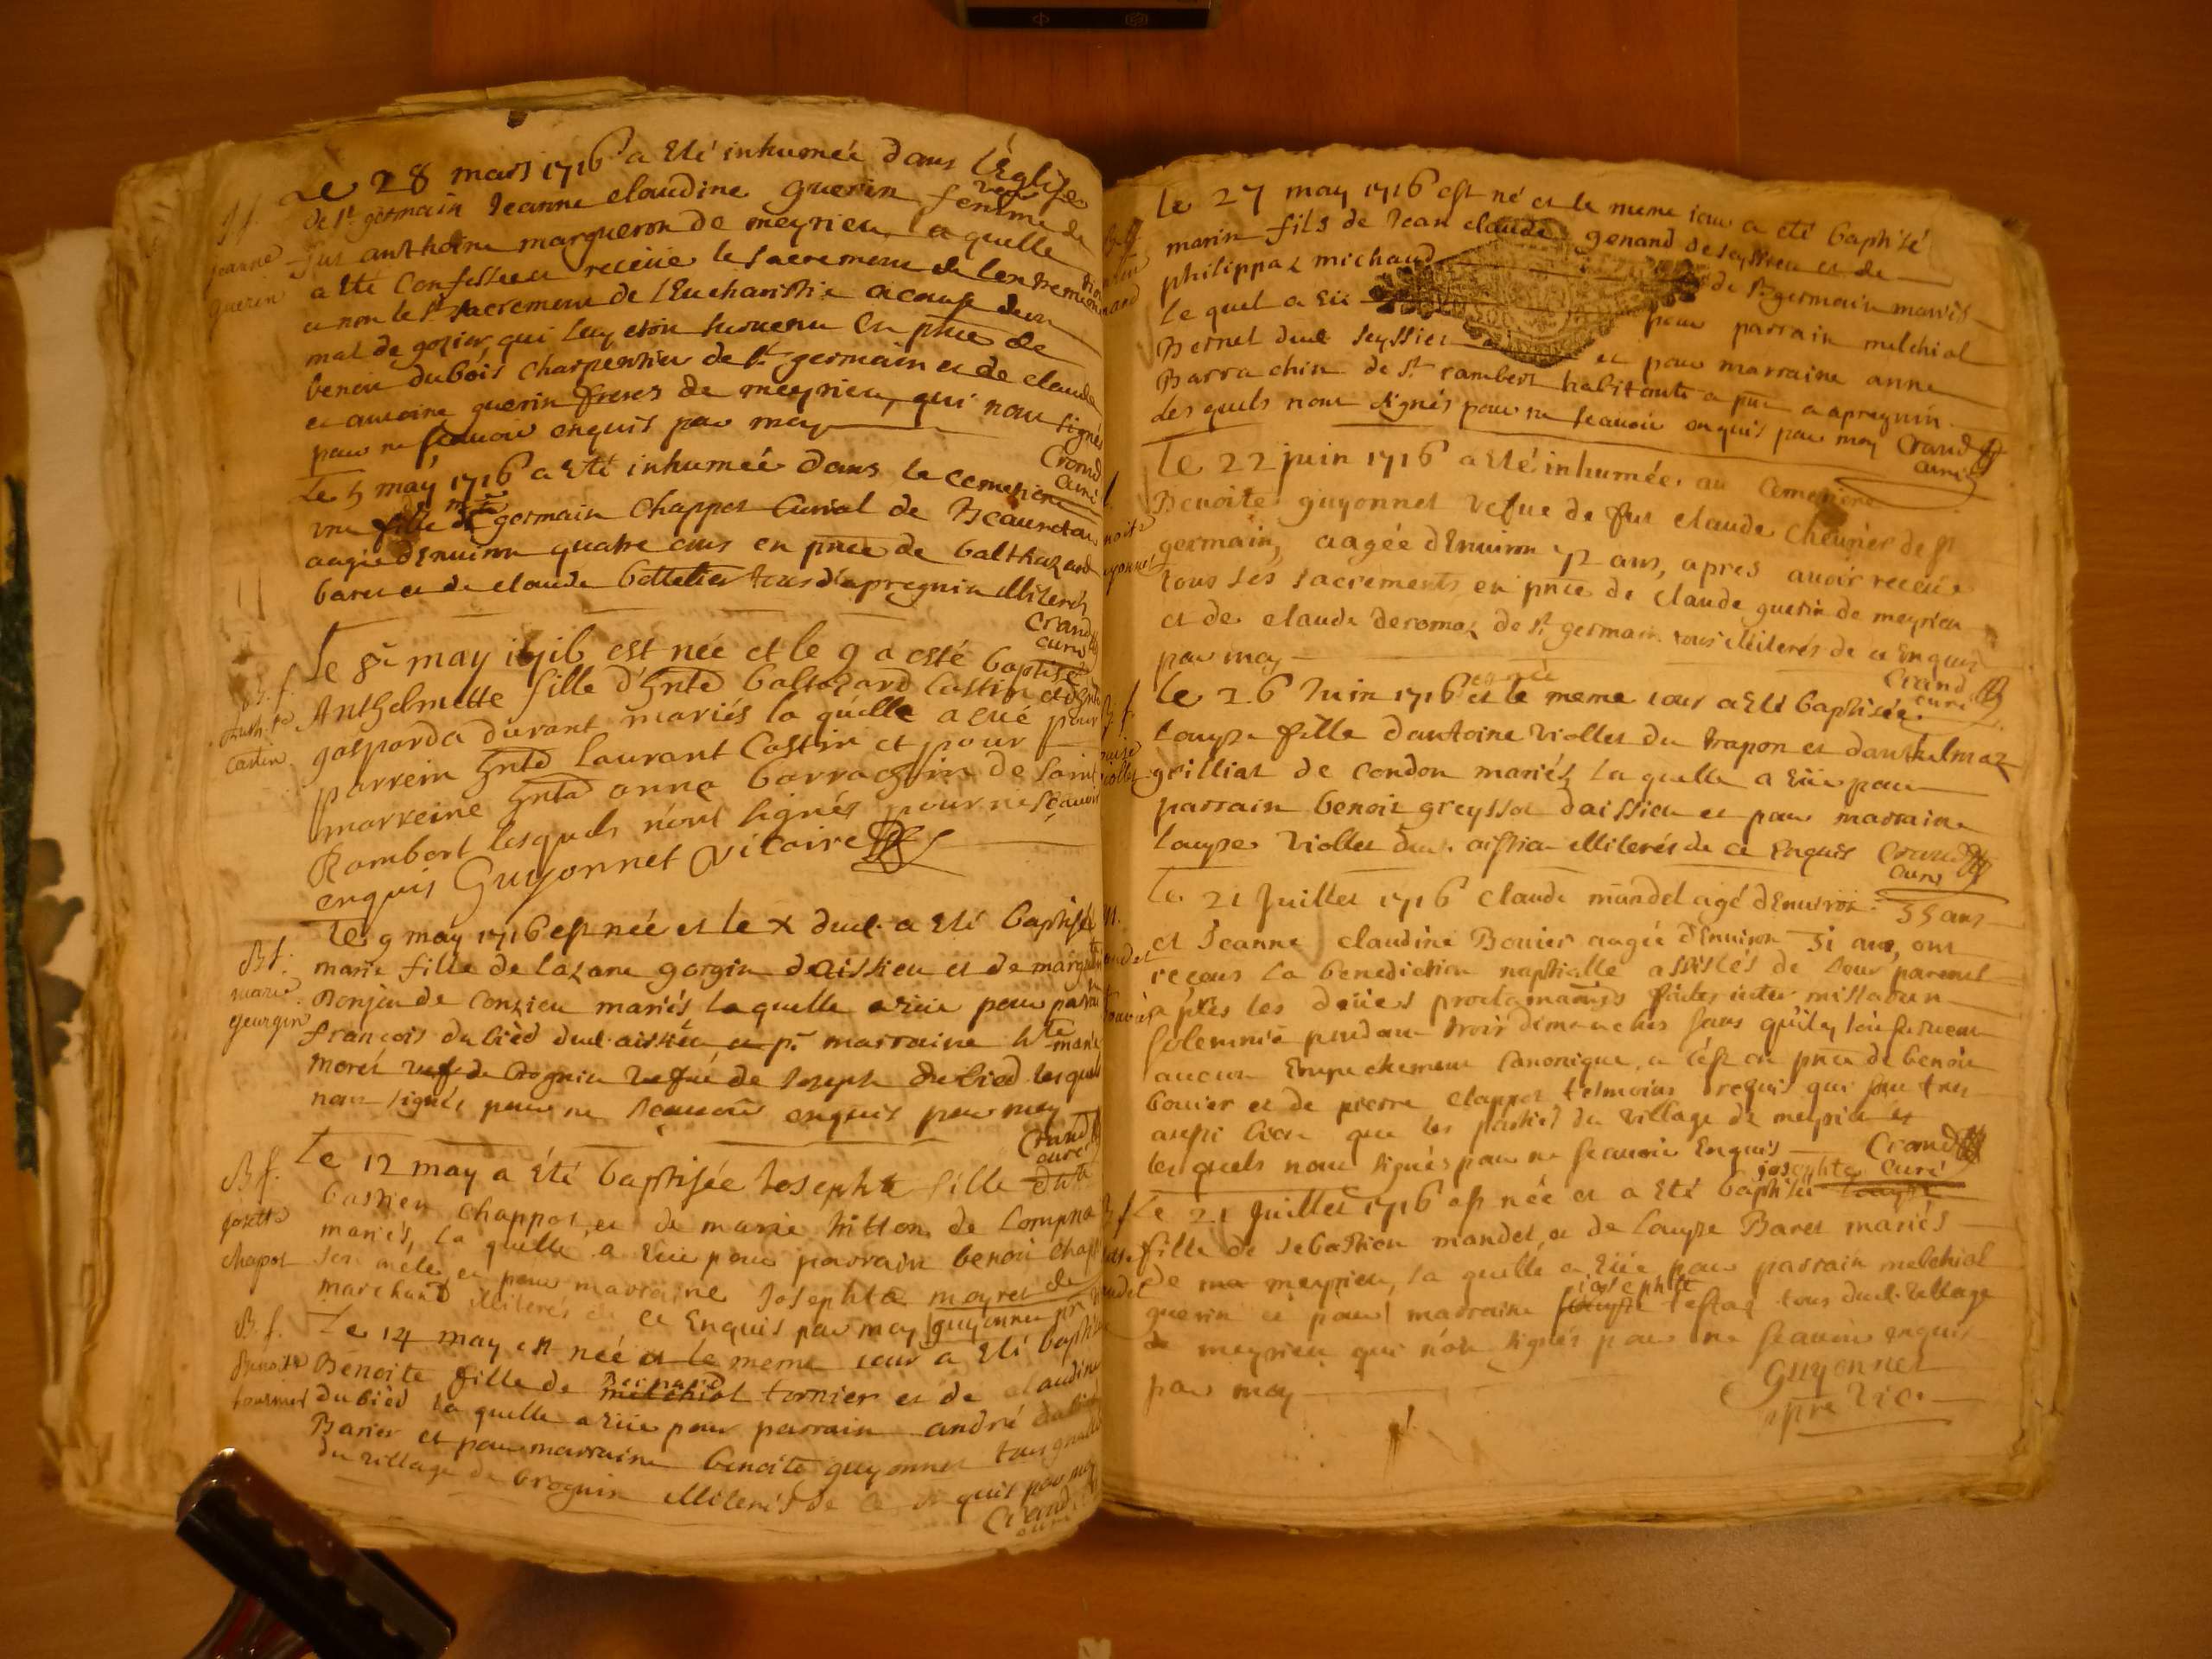 Le 28 mars 1716 a Eté inhumée dans l'Eglise
de St germain Jeanne claudine guerin femme de
feu anthoine margueron de meyrieu laquelle
a Eté Confessée et receüe le sacrement de l'extremonction
et non le St sacrement de l'Eucharistie a cause d'un
mal de gozier qui luy estoit survenu En pnce de
benoit dubois charpentier de St germain et de claude
et antoine guerin freres de meyrieu, qui n'ont signés
pour ne sçavoir enquis par moy
Crand
curé
Jeanne
guerin
Le 5 may 1716 a Eté inhumée dans le cemetiere
une fille de germain Chappot de
aagée d'Environ quatre ans en pnce de balthazard
baret et de claude bottelier tous d'apregnin illiterés
Crand
curé
Le 8e may 1716 est née et le 9 a esté baptisé
Anthelmette fille d'hnte baltazard Castin et d'hnte
gasparda durant mariés la quelle a eüe pour
parrein hnte laurant Castin et pour
marreine hnte anne barrachin de saint
Rambert lesquels n'ont signés pour ne sçavoir
enquis Guyonnet vicaire
B. f.
Castin
Le 9 may 1716 est née et le X dud. a Eté baptisée
marie fille de lazare gorgin d'aissieu et de marguerite
Bonjeu de Conzieu mariés laquelle a eüe pour parrain
françois dubied dud. aissieu, et pr. marraine hte marie
morel de Brognin vefve de Joseph dubied lesquels
n'ont signés pour ne sçavoir enquis par moy
Crand
curé
B f.
marie
georgin
Le 12 may a Eté baptisée Josephte fille d'hte
bastien chappot, et de marie hitton de Lompna
mariés, la quelle a Eüe pour parrain benoit chapot
et pour marraine Josephte mayret de
marchand illiterés de ce Enquis par moy guyonnet
B f.
josette
chapot
Le 14 may est née et le meme jour a Eté baptisée
Benoite fille de Bernard melchiol tornier et de claudine
dubied la quelle a Eüe pour parrain andré dubied
Barier et pour marraine benoite guyonnet tous
du village de brognin illiterés de ce Enquis par moy
Crand
curé
B. f.
Benoite
tournier
Le 27 may 1716 est né et le meme jour a eté baptisé
marin fils de Jean claude genand de seyssieu et de
philippaz michaud de St germain mariés
Le quel a Eü pour parrain melchiol
Bernet dud. seyssieu et pour marraine anne
Barrachin de St rambert habitante a pnt a apregnin
lesquels n'ont signés pour ne scavoir enquis par moy Crand
curé
Le 22 juin 1716 a Eté inhumée au Cemetiere
Benoite guyonnet vefve de feu claude Chevrier de St
germain, aagée d'Environ 72 ans, apres avoir receüe
tous ses sacrements en pnce de claude guerin de meyrieu
et de claude deromaz de St germain tous illiterés de ce Enquis
par moy
Crand
curé
Le 26 Juin 1716 est née et le meme jour a Eté baptisée
Louyse fille d'antoine viollet du trapon et d'anthelmaz
grilliat de Condon mariés la quelle a Eüe pour
parrain benoit greyssot d'aissieu et pour marraine
Louyse viollet dud. aissieu illiterés de ce Enquis Crand
curé
Le 21 Juillet 1716 claude mandet agé d'Environ 35 ans
et Jeanne claudine Bovier aagée d'Environ 31 ans, ont
reçeus la benediction nuptialle assistés de leur parents
après les deües proclamations faites inter missarum
solemnia pendant trois dimanches sans qu'il y soit survenu
aucun Empechement Canonique, a c'est en pnce de benoit
bovier et de pierre clappot temoins requis qui sont
aussi bien que les parties du village de meyrieu et
lesquels n'ont signés pour ne scavoir Enquis
Crand
curé
Le 21 Juillet 1716 est née et a Eté baptisée josephte Louyse
fille de sebastien mandet, et de Louyse Baret mariés
de meyrieu, la quelle a Eüe pour parrain melchiol
guerin et pour marraine josephte Louyse testaz tous dud. village
de meyrieu qui n'ont signés pour ne scavoir enquis
par moy
Guyonnet
ptre vic.